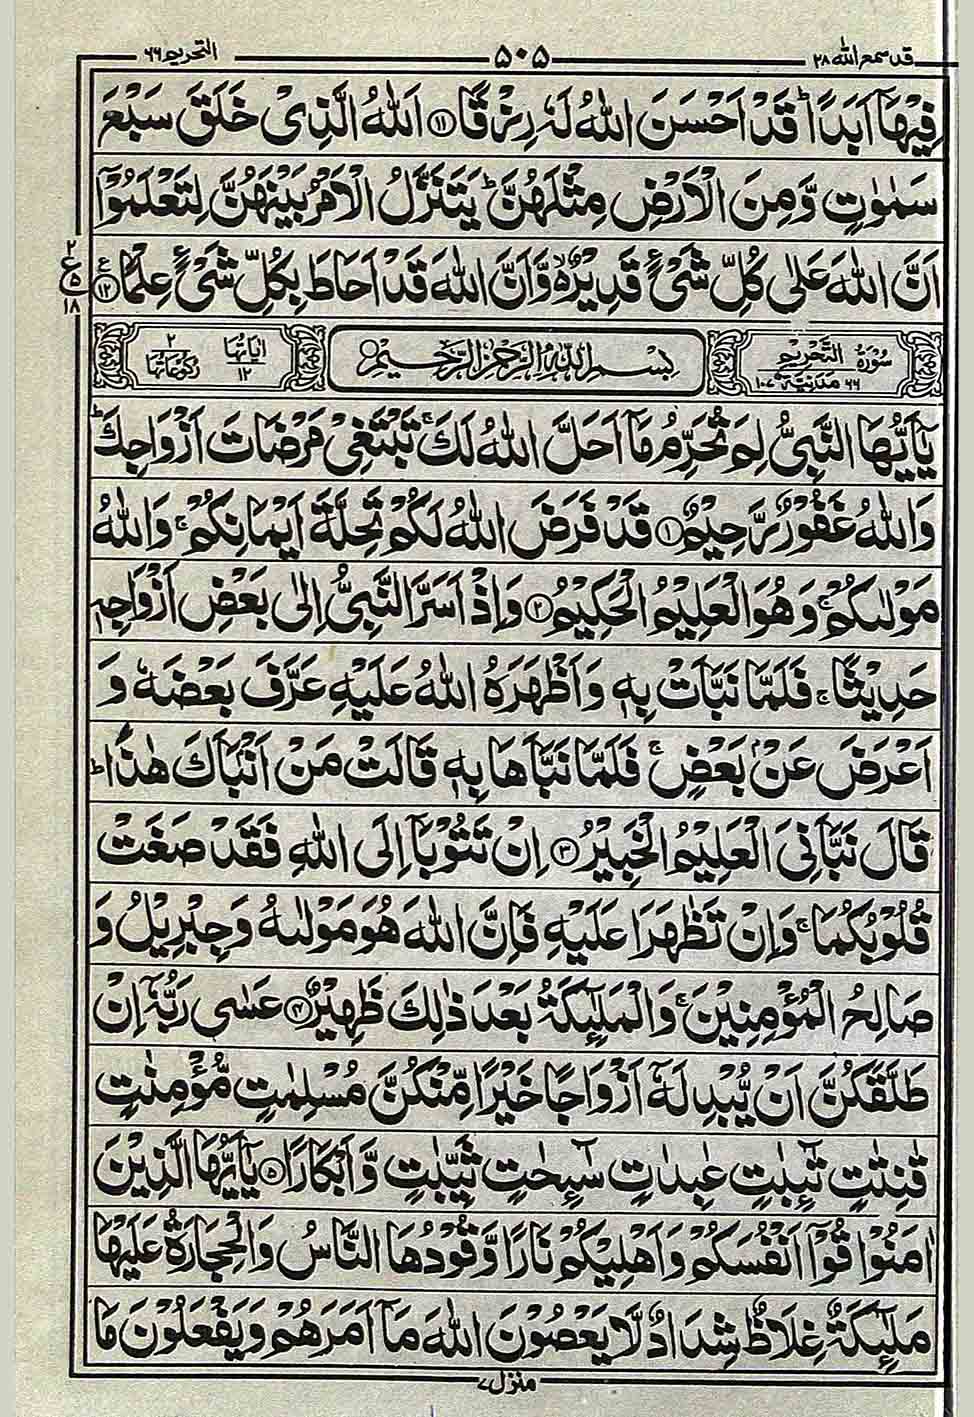 قد سمع الله ۲۸ ۵۰۵ التحریم ۶۶
فِيْهَاۤ اَبَدًا ؕ قَدْ اَحْسَنَ اللّٰهُ لَهٗ رِزْقًا ۝۱۱ اَللّٰهُ الَّذِيْ خَلَقَ سَبْعَ
سَمٰوٰتٍ وَّمِنَ الْاَرْضِ مِثْلَهُنَّ ؕ يَتَنَزَّلُ الْاَمْرُ بَيْنَهُنَّ لِتَعْلَمُوْۤا
اَنَّ اللّٰهَ عَلٰى كُلِّ شَيْءٍ قَدِيْرٌ ۙ وَّاَنَّ اللّٰهَ قَدْ اَحَاطَ بِكُلِّ شَيْءٍ عِلْمًا ۝۱۲
۲ ع ۵ ۱۸
سُوْرَةُ التَّحْرِيْمِ ۶۶ مَدَنِيَّةٌ ۱۰۷ بِسْمِ اللّٰهِ الرَّحْمٰنِ الرَّحِيْمِ اٰيَاتُهَا ۱۲ رُكُوْعَاتُهَا ۲
يٰۤاَيُّهَا النَّبِيُّ لِمَ تُحَرِّمُ مَاۤ اَحَلَّ اللّٰهُ لَكَ ۚ تَبْتَغِيْ مَرْضَاتَ اَزْوَاجِكَ ؕ
وَاللّٰهُ غَفُوْرٌ رَّحِيْمٌ ۝۱ قَدْ فَرَضَ اللّٰهُ لَكُمْ تَحِلَّةَ اَيْمَانِكُمْ ۚ وَاللّٰهُ
مَوْلٰىكُمْ ۚ وَهُوَ الْعَلِيْمُ الْحَكِيْمُ ۝۲ وَاِذْ اَسَرَّ النَّبِيُّ اِلٰى بَعْضِ اَزْوَاجِهٖ
حَدِيْثًا ۚ فَلَمَّا نَبَّاَتْ بِهٖ وَاَظْهَرَهُ اللّٰهُ عَلَيْهِ عَرَّفَ بَعْضَهٗ وَ
اَعْرَضَ عَنْۢ بَعْضٍ ۚ فَلَمَّا نَبَّاَهَا بِهٖ قَالَتْ مَنْ اَنْۢبَاَكَ هٰذَا ؕ
قَالَ نَبَّاَنِيَ الْعَلِيْمُ الْخَبِيْرُ ۝۳ اِنْ تَتُوْبَاۤ اِلَى اللّٰهِ فَقَدْ صَغَتْ
قُلُوْبُكُمَا ۚ وَاِنْ تَظٰهَرَا عَلَيْهِ فَاِنَّ اللّٰهَ هُوَ مَوْلٰىهُ وَجِبْرِيْلُ وَ
صَالِحُ الْمُؤْمِنِيْنَ ۚ وَالْمَلٰٓئِكَةُ بَعْدَ ذٰلِكَ ظَهِيْرٌ ۝۴ عَسٰى رَبُّهٗۤ اِنْ
طَلَّقَكُنَّ اَنْ يُّبْدِلَهٗۤ اَزْوَاجًا خَيْرًا مِّنْكُنَّ مُسْلِمٰتٍ مُّؤْمِنٰتٍ
قٰنِتٰتٍ تٰٓئِبٰتٍ عٰبِدٰتٍ سٰٓئِحٰتٍ ثَيِّبٰتٍ وَّاَبْكَارًا ۝۵ يٰۤاَيُّهَا الَّذِيْنَ
اٰمَنُوْا قُوْۤا اَنْفُسَكُمْ وَاَهْلِيْكُمْ نَارًا وَّقُوْدُهَا النَّاسُ وَالْحِجَارَةُ عَلَيْهَا
مَلٰٓئِكَةٌ غِلَاظٌ شِدَادٌ لَّا يَعْصُوْنَ اللّٰهَ مَاۤ اَمَرَهُمْ وَيَفْعَلُوْنَ مَا
منزل ۷